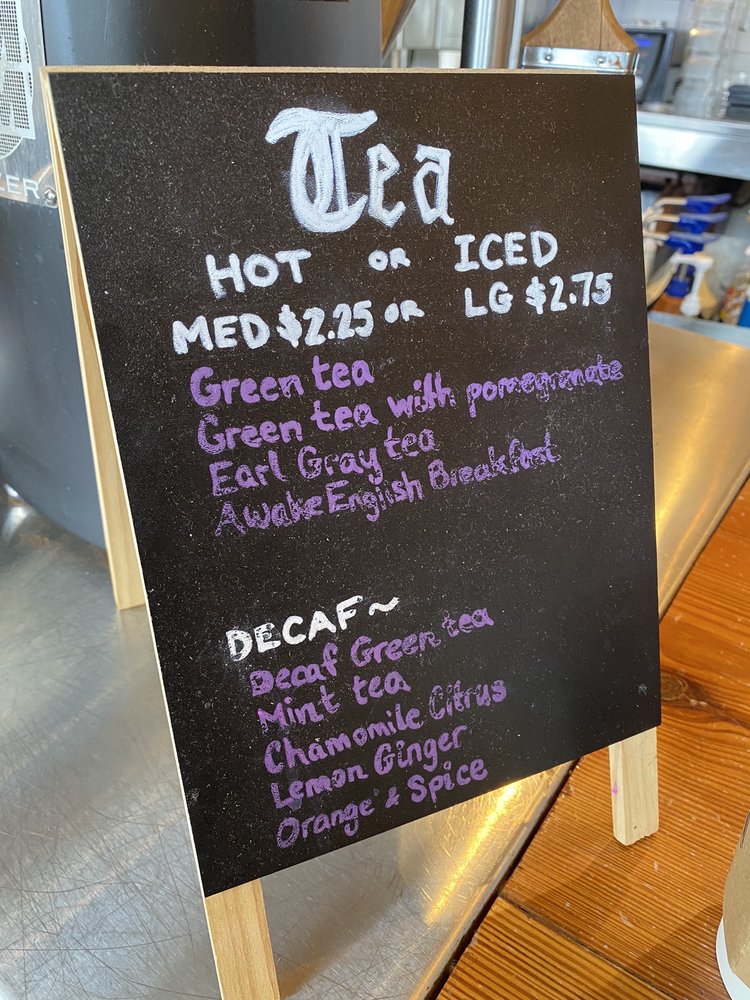 Tea
HOT OR ICED
MED $2.25 OR LG $2.75
Green tea
Green tea with pomegranate
Earl Gray tea
Awake English Breakfast
DECAF~
Decaf Green tea
Mint tea
Chamomile Citrus
Lemon Ginger
Orange & Spice
ZER